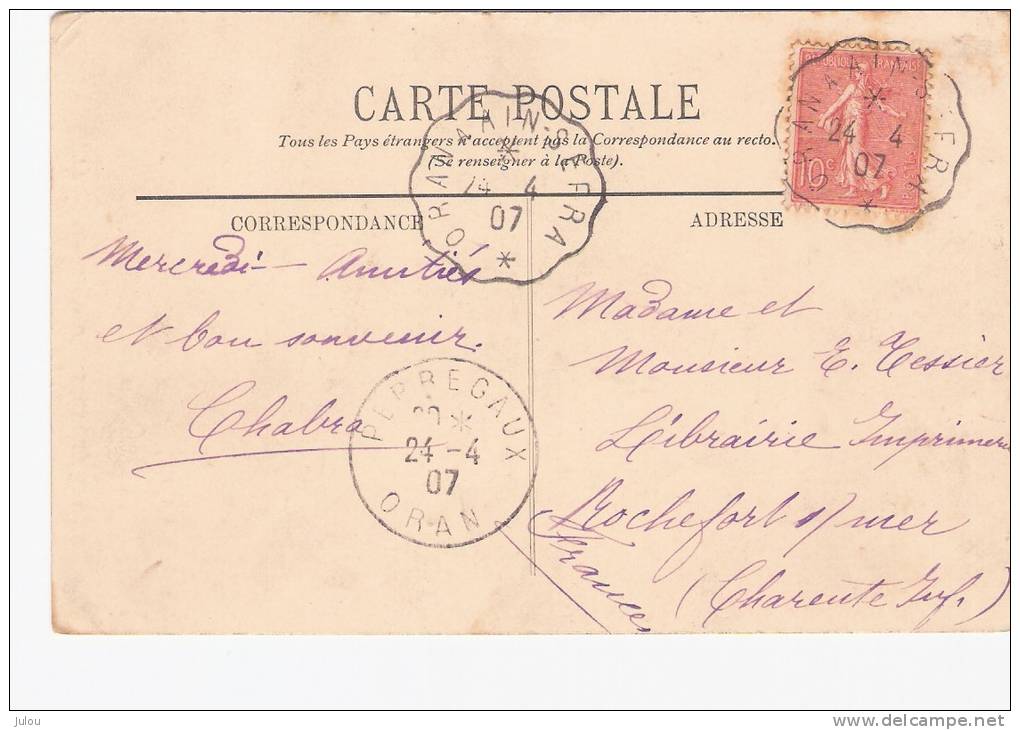 CARTE POSTALE
Tous les Pays étrangers n'acceptent pas la Correspondance au recto.
(Se renseigner à la Poste).
CORRESPONDANCE
ADRESSE
REPUBLIQUE FRANÇAISE
10c
ORAN A AIN-SEFRA
24 4
07
ORAN A AIN-SEFRA
24 4
07
Mercredi - Amitiés
et bon souvenir.
Chabro
PERREGAUX
24-4
07
ORAN
Madame et
Monsieur E. Tessier
Librairie Imprimerie
Rochefort s/ mer
(Charente Inf.)
France
Julou
www.delcampe.net